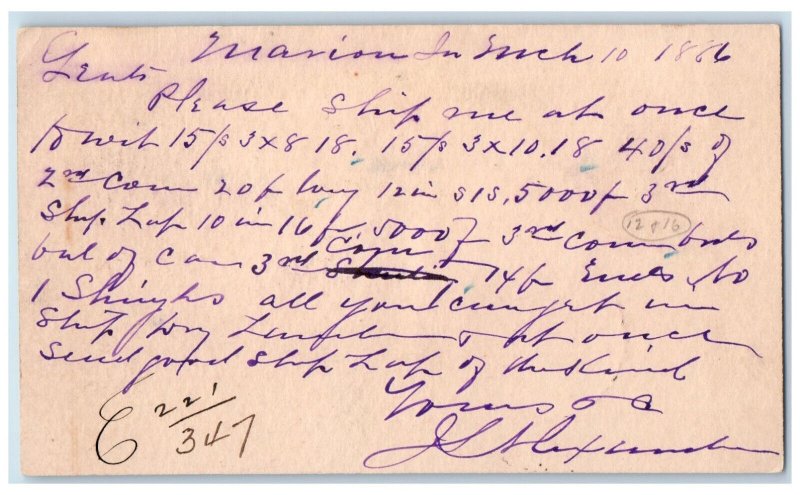 Marion In Mch 10 1886
Gents
Please Ship me at once
to wit 15/s 3x8 18. 15/s 3x10.18 40/s of
2nd Com 20 f long 12 in S1S, 5000 f 3rd
Ship Lap 10 in 16 f, 5000 f 3rd Com bds
12 & 16
bal of Car 3rd Com 14 f Ends No
1 Shingles all you can get in
Ship Dry Lumber & at once
Send good Ship Lap of the Kind
Yours &c
J L Alexander
C 221/347